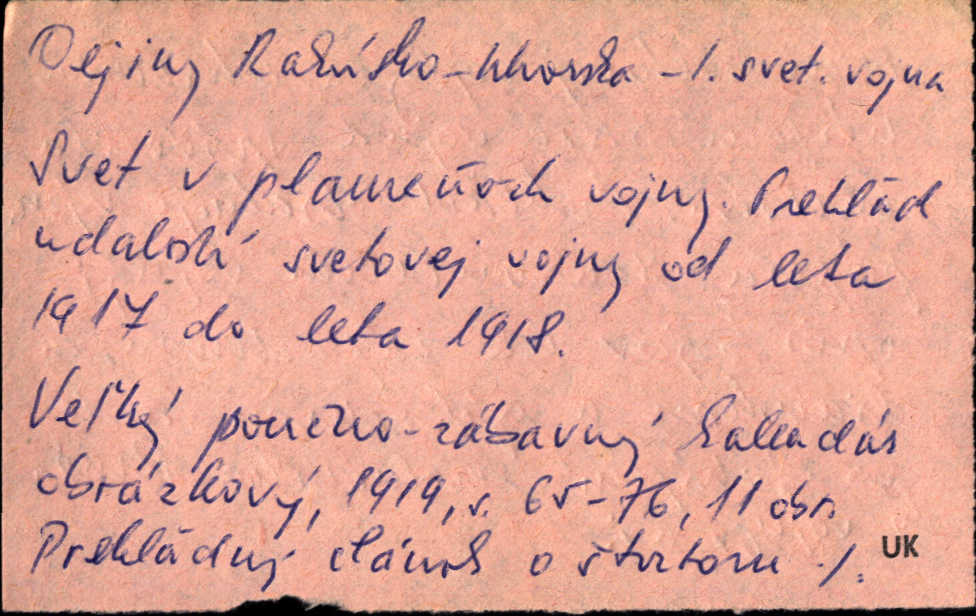 Dejiny Rakúsko-Uhorska - 1. svet. vojna
Svet v plameňoch vojny. Prehľad
udalostí svetovej vojny od leta
1917 do leta 1918.
Veľký poučno-zábavný kalendár
obrázkový, 1919, s. 65-76, 11 obr.
Prehľadný článok o štvrtom
UK